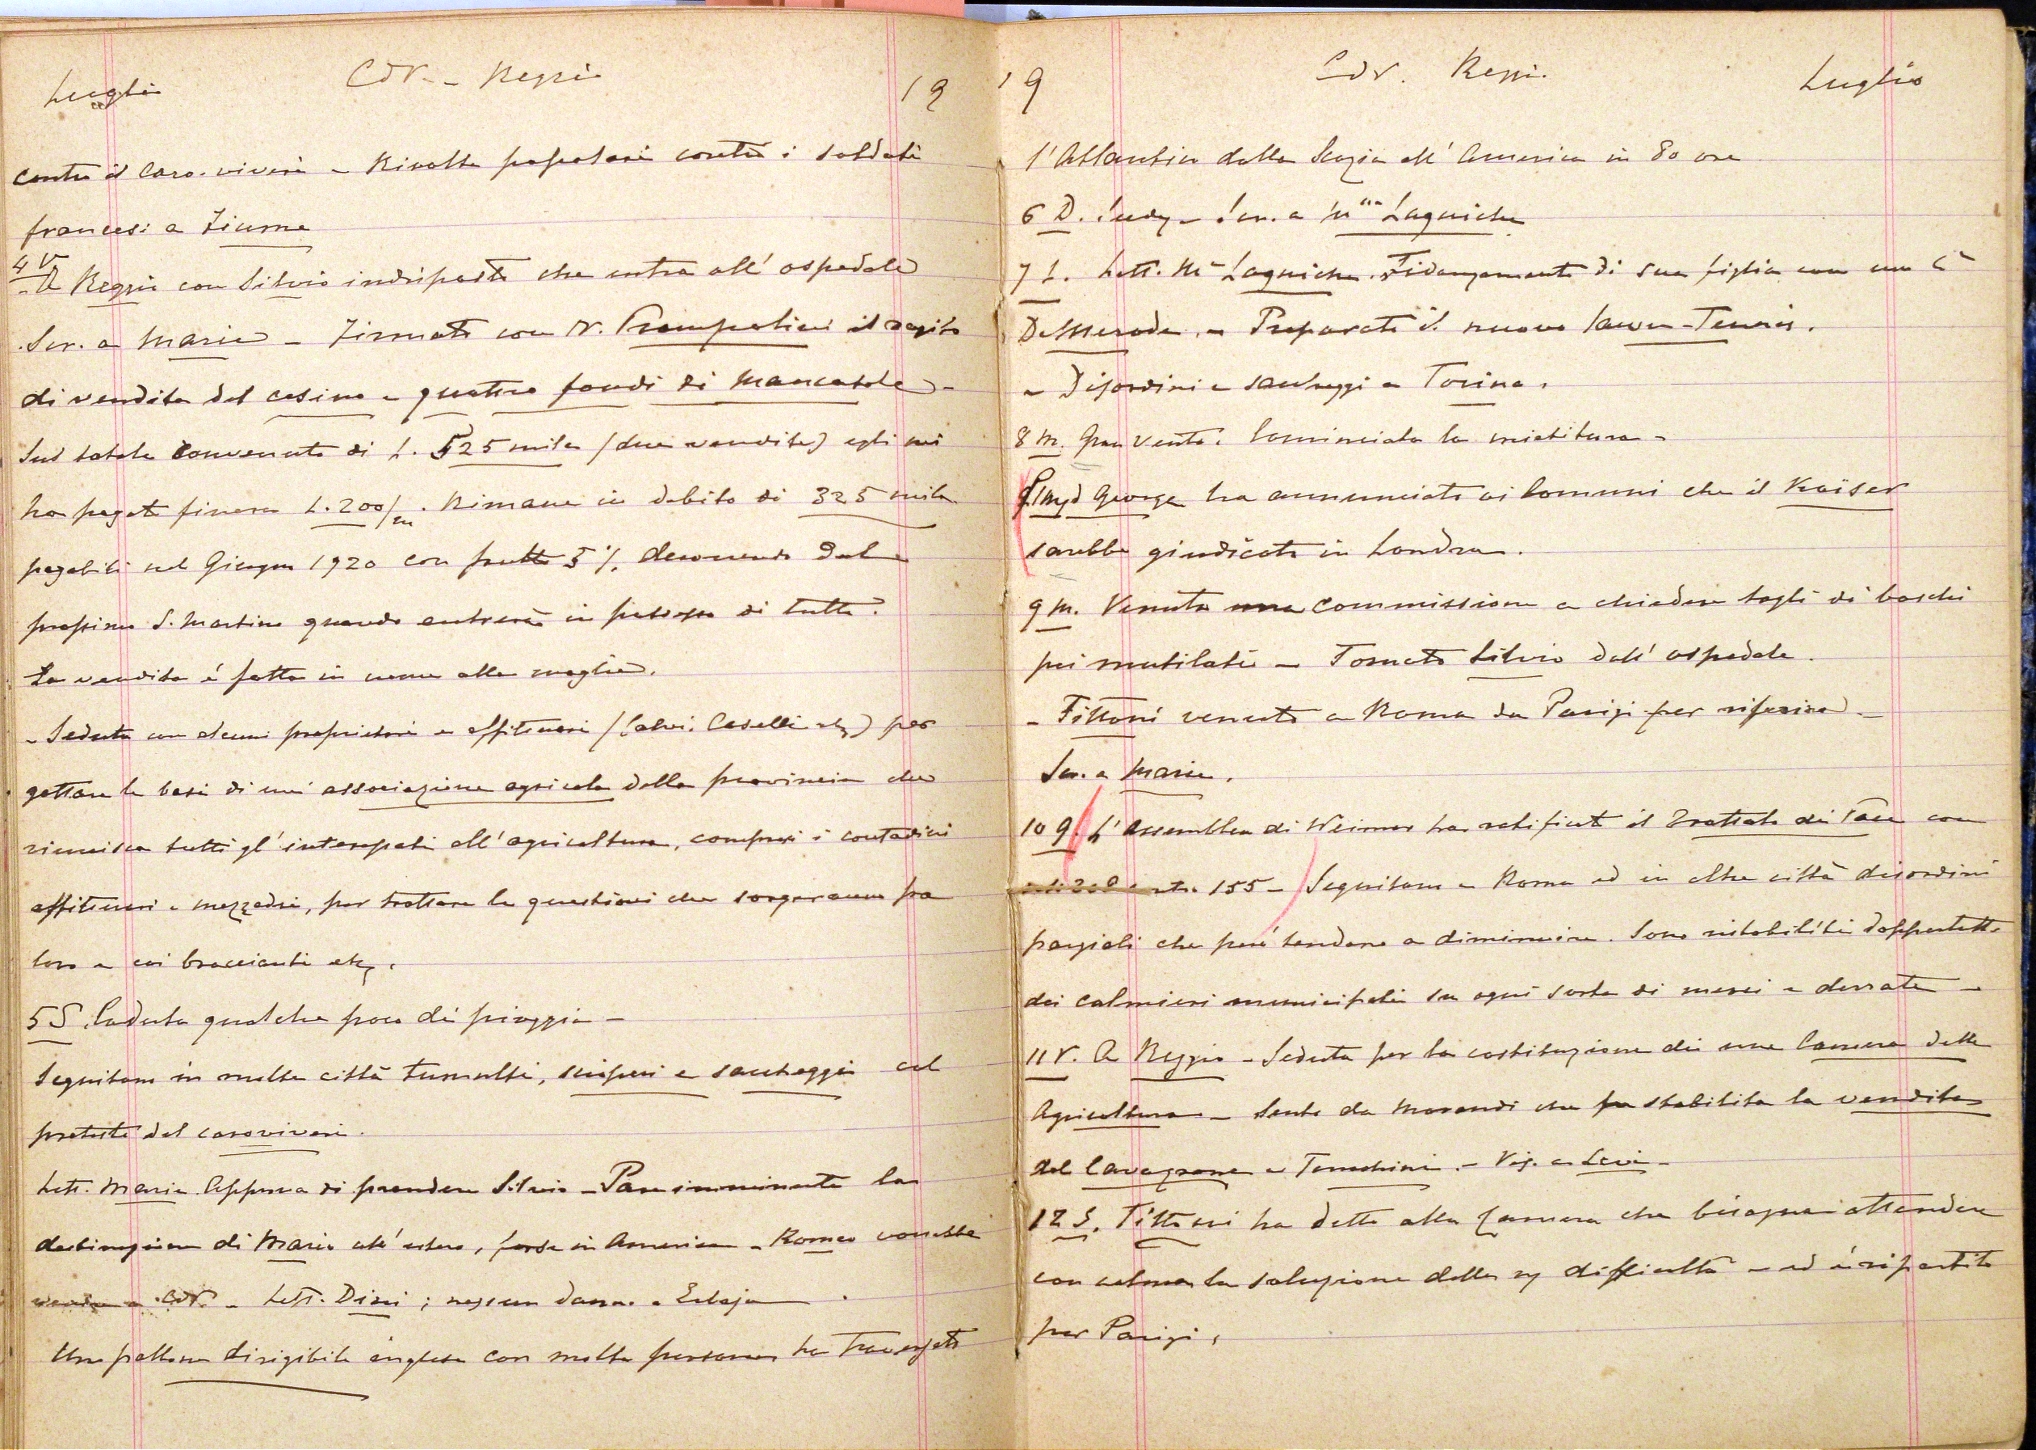 Luglio Cdr. - Reggio 19
contro il caro-viveri - Rivolte popolari contro i soldati
francesi a Fiume
4 V A Reggio con Silvio indisposto che entra all'ospedale
Scr. a Marie - Firmato con N. Prampolini il rogito
di vendita del casino e quattro fondi di Mancasale -
Sul totale convenuto di L. 525 mila (due vendite) egli mi
ha pagato finora L. 200/m. Rimane in debito di 325 mila
pagabili nel Giugno 1920 con frutto 5 % decorrendo dal
prossimo S. Martino quando entrerà in possesso di tutto.
La vendita é fatta in nome alla moglie.
- Seduta con alcuni proprietari e affittuari (Calvi. Caselli etc) per
gettare le basi di un'associazione agricola della provincia che
riunisca tutti gl'interessati all'agricoltura, compresi i contadini
affittuari e mezzadri, per trattare le questioni che sorgeranno fra
loro e coi braccianti etc.
5 S. Caduta qualche poco di pioggia -
Seguitano in molte città tumulti, scioperi e saccheggi col
pretesto del caroviveri.
Lett. Marie. Approva di prendere Silvio - Pare imminente la
destinazione di Mario all'estero, forse in America - Romeo vorrebbe
venire a Cdr. - Lett. Dini; nessun danno a
Un pallone dirigibile inglese con molte persone ha traversato
19 Cdr. Reggio. Luglio
l'Atlantico dalla Scozia all'America in 80 ore
6 D. - Scr. a Mme Laguiche
7 L. Lett. Me Laguiche. Fidanzamento di sua figlia con un Ce
DeMerode. - Preparato il nuovo Lawn-Tennis.
- Disordini e saccheggi a Torino.
8 M. Gran vento. Cominciata la mietitura -
Lloyd George ha annunciato ai Comuni che il Kaiser
sarebbe giudicato in Londra.
9 M. Venuta una commissione a chiedere tagli di boschi
pei mutilati - Tornato Silvio dall'ospedale.
- Tittoni venuto a Roma da Parigi per riferire -
Scr. a Marie.
10 G. L'Assemblea di Weimar ha ratificato il Trattato di Pace con
voti 208 contro 155 - Seguitano a Roma ed in altre città disordini
parziali che peró tendono a diminuire. Sono ristabiliti dappertutto
dei calmieri municipali su ogni sorta di merci e derrate -
11 V. A Reggio - Seduta per la costituzione di una Camera della
Agricoltura - Sento da Morandi che fu stabilita la vendita
del Cavazzone a - Vis. a Levi -
12 S. Tittoni ha detto alla Camera che bisogna attendere
con calma la soluzione delle ns difficoltà - ed é ripartito
per Parigi.